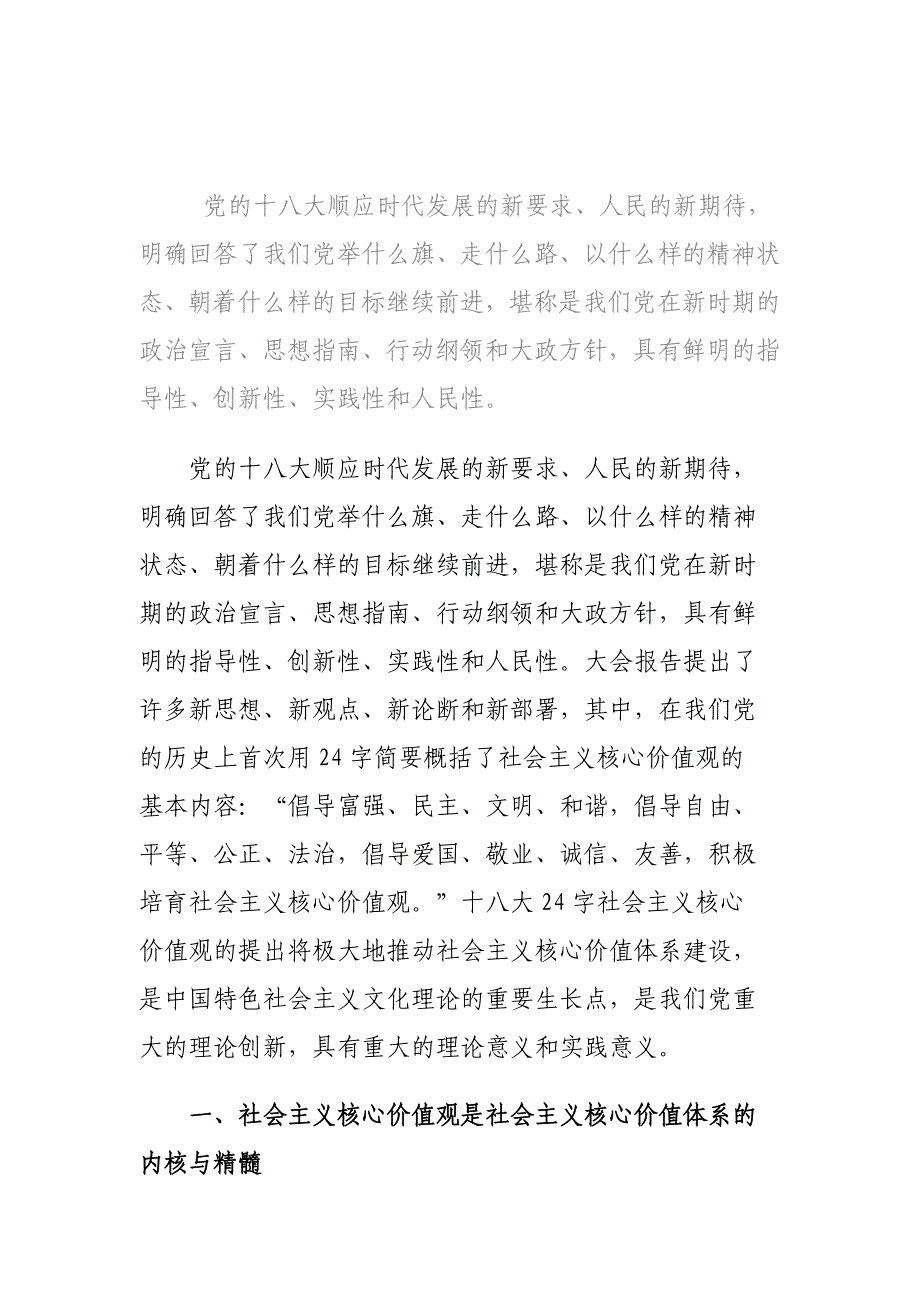 党的十八大顺应时代发展的新要求、人民的新期待，
明确回答了我们党举什么旗、走什么路、以什么样的精神状
态、朝着什么样的目标继续前进，堪称是我们党在新时期的
政治宣言、思想指南、行动纲领和大政方针，具有鲜明的指
导性、创新性、实践性和人民性。
党的十八大顺应时代发展的新要求、人民的新期待，
明确回答了我们党举什么旗、走什么路、以什么样的精神
状态、朝着什么样的目标继续前进，堪称是我们党在新时
期的政治宣言、思想指南、行动纲领和大政方针，具有鲜
明的指导性、创新性、实践性和人民性。大会报告提出了
许多新思想、新观点、新论断和新部署，其中，在我们党
的历史上首次用 24 字简要概括了社会主义核心价值观的
基本内容：“倡导富强、民主、文明、和谐，倡导自由、
平等、公正、法治，倡导爱国、敬业、诚信、友善，积极
培育社会主义核心价值观。”十八大 24 字社会主义核心
价值观的提出将极大地推动社会主义核心价值体系建设，
是中国特色社会主义文化理论的重要生长点，是我们党重
大的理论创新，具有重大的理论意义和实践意义。
一、社会主义核心价值观是社会主义核心价值体系的
内核与精髓